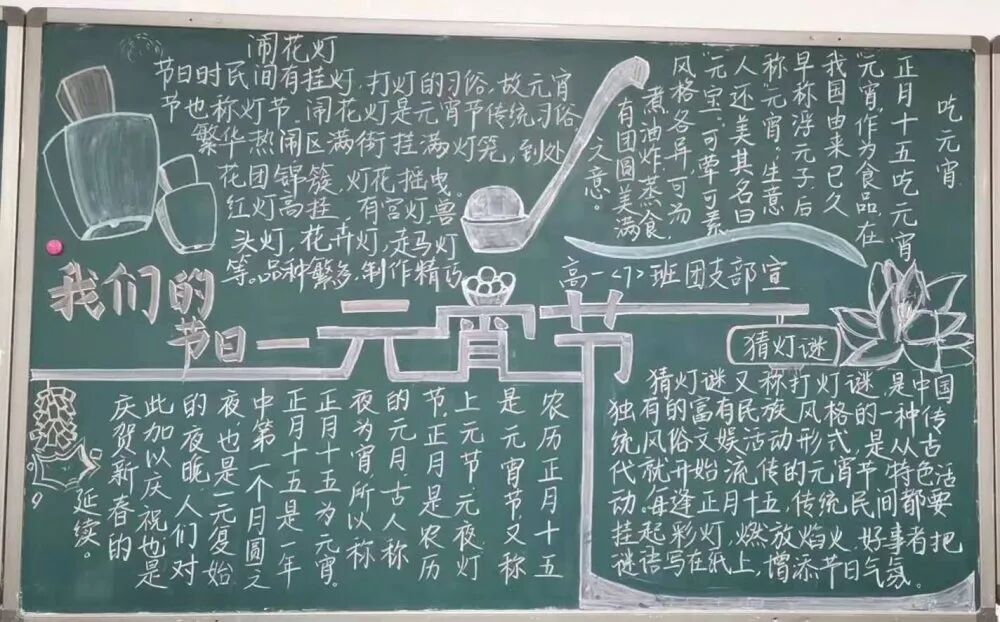 闹花灯
节日时民间有挂灯,打灯的习俗,故元宵
节也称灯节。闹花灯是元宵节传统习俗
繁华热闹区满街挂满灯笼,到处
花团锦簇,灯花摇曳。
红灯高挂,有宫灯,兽
头灯,花卉灯,走马灯
等。品种繁多,制作精巧
吃元宵
正月十五吃元宵
"元宵"作为食品,在
我国由来已久
早称浮元子,后
称"元宵",生意
人还美其名曰
"元宝",可荤可素
风格各异,可汤
煮油炸蒸食,
有团圆美满
之意。
高一<7>班团支部宣
我们的
节日—元宵节
农历正月十五
是元宵节又称
上元节元夜灯
节。正月是农历
的元月古人称
夜为宵,所以称
正月十五为元宵。
正月十五是一年
中第一个月圆之
夜,也是一元复始
的夜晚,人们对
此加以庆祝也是
庆贺新春的
延续。
猜灯谜
猜灯谜又称打灯谜,是中国
独有的富有民族风格的一种传
统风俗文娱活动形式,是从古
代就开始流传的元宵节特色活
动。每逢正月十五,传统民间都要
挂起彩灯,燃放焰火,好事者把
谜语写在纸上,增添节日气氛。